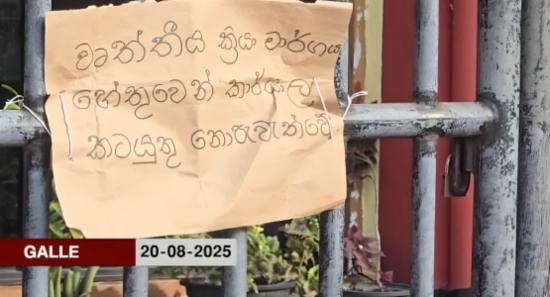 වෘත්තීය ක්‍රියා මාර්ගය
හේතුවෙන් කාර්යාල
කටයුතු නොපැවැත්වේ
GALLE 20-08-2025